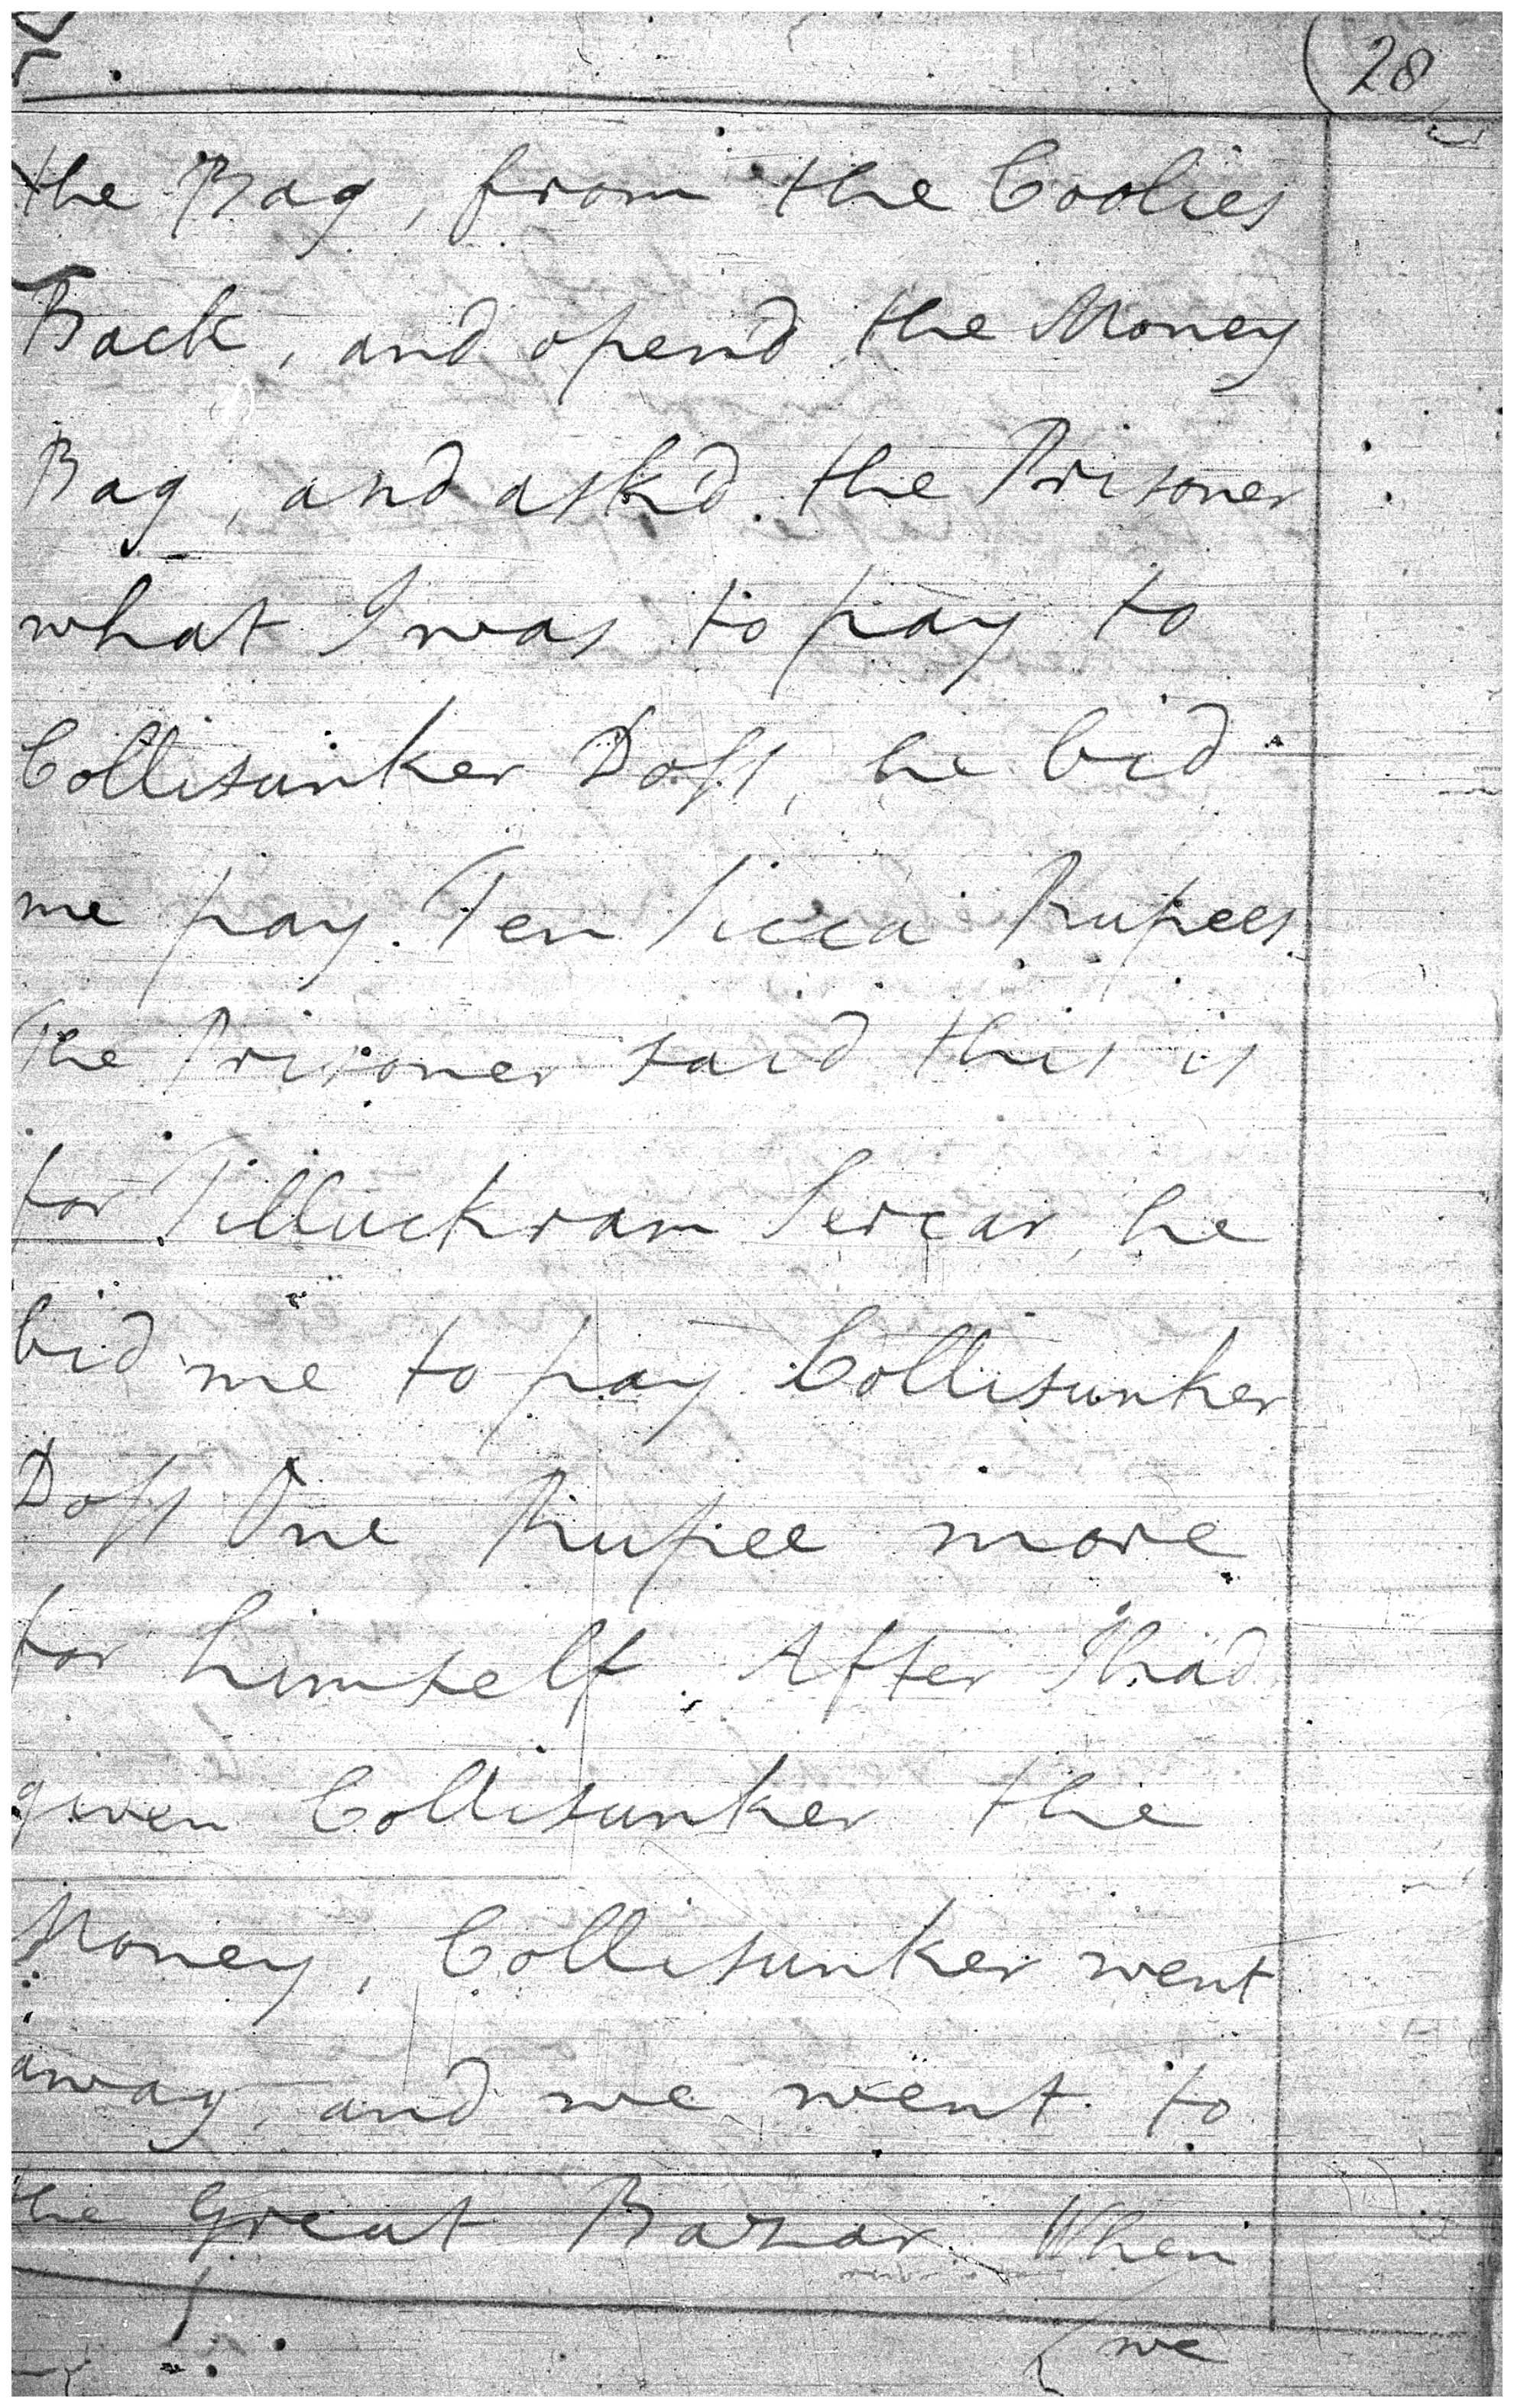 28
the Bag, from the Coolies
Back, and opend the Money
Bag, and ask'd the Prisoner
what I was to pay to
Collisunker Doss, he bid
me pay Ten Sicca Rupees.
The Prisoner said this is
for Tilluckram Sercar, he
bid me to pay Collisunker
Doss One Rupee more
for himself. After I had
given Collisunker the
Money, Collisunker went
away, and we went to
the Great Bazar. When
we